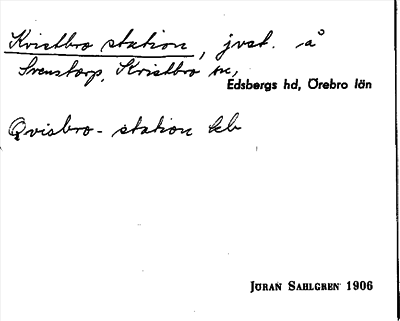 Kvistbro station, jvst. å
Svenstorp, Kvistbro sn,
Edsbergs hd, Örebro län
Qvisbro- station kb
JÖRAN SAHLGREN 1906